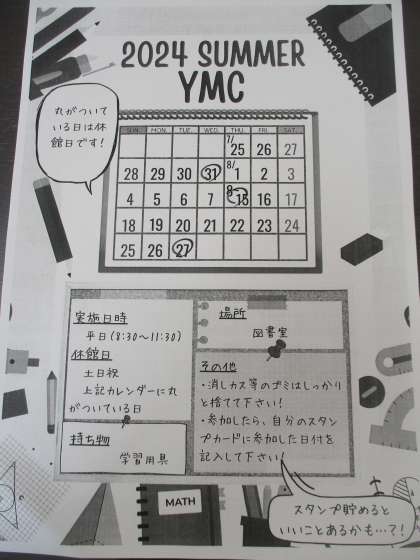 2024 SUMMER
YMC
丸がついて
いる日は休
館日です!
SUN. MON. TUE. WED. THU. FRI. SAT.
7/25 26 27
28 29 30 31 8/1 2 3
4 5 6 7 8 16 17
18 19 20 21 22 23 24
25 26 27
実施日時
平日(8:30〜11:30)
休館日
土日祝
上記カレンダーに丸
がついている日
持ち物
学習用具
場所
図書室
その他
・消しカス等のゴミはしっかり
と捨てて下さい!
・参加したら、自分のスタン
プカードに参加した日付を
記入して下さい!
MATH
スタンプ貯めると
いいことあるかも…?!